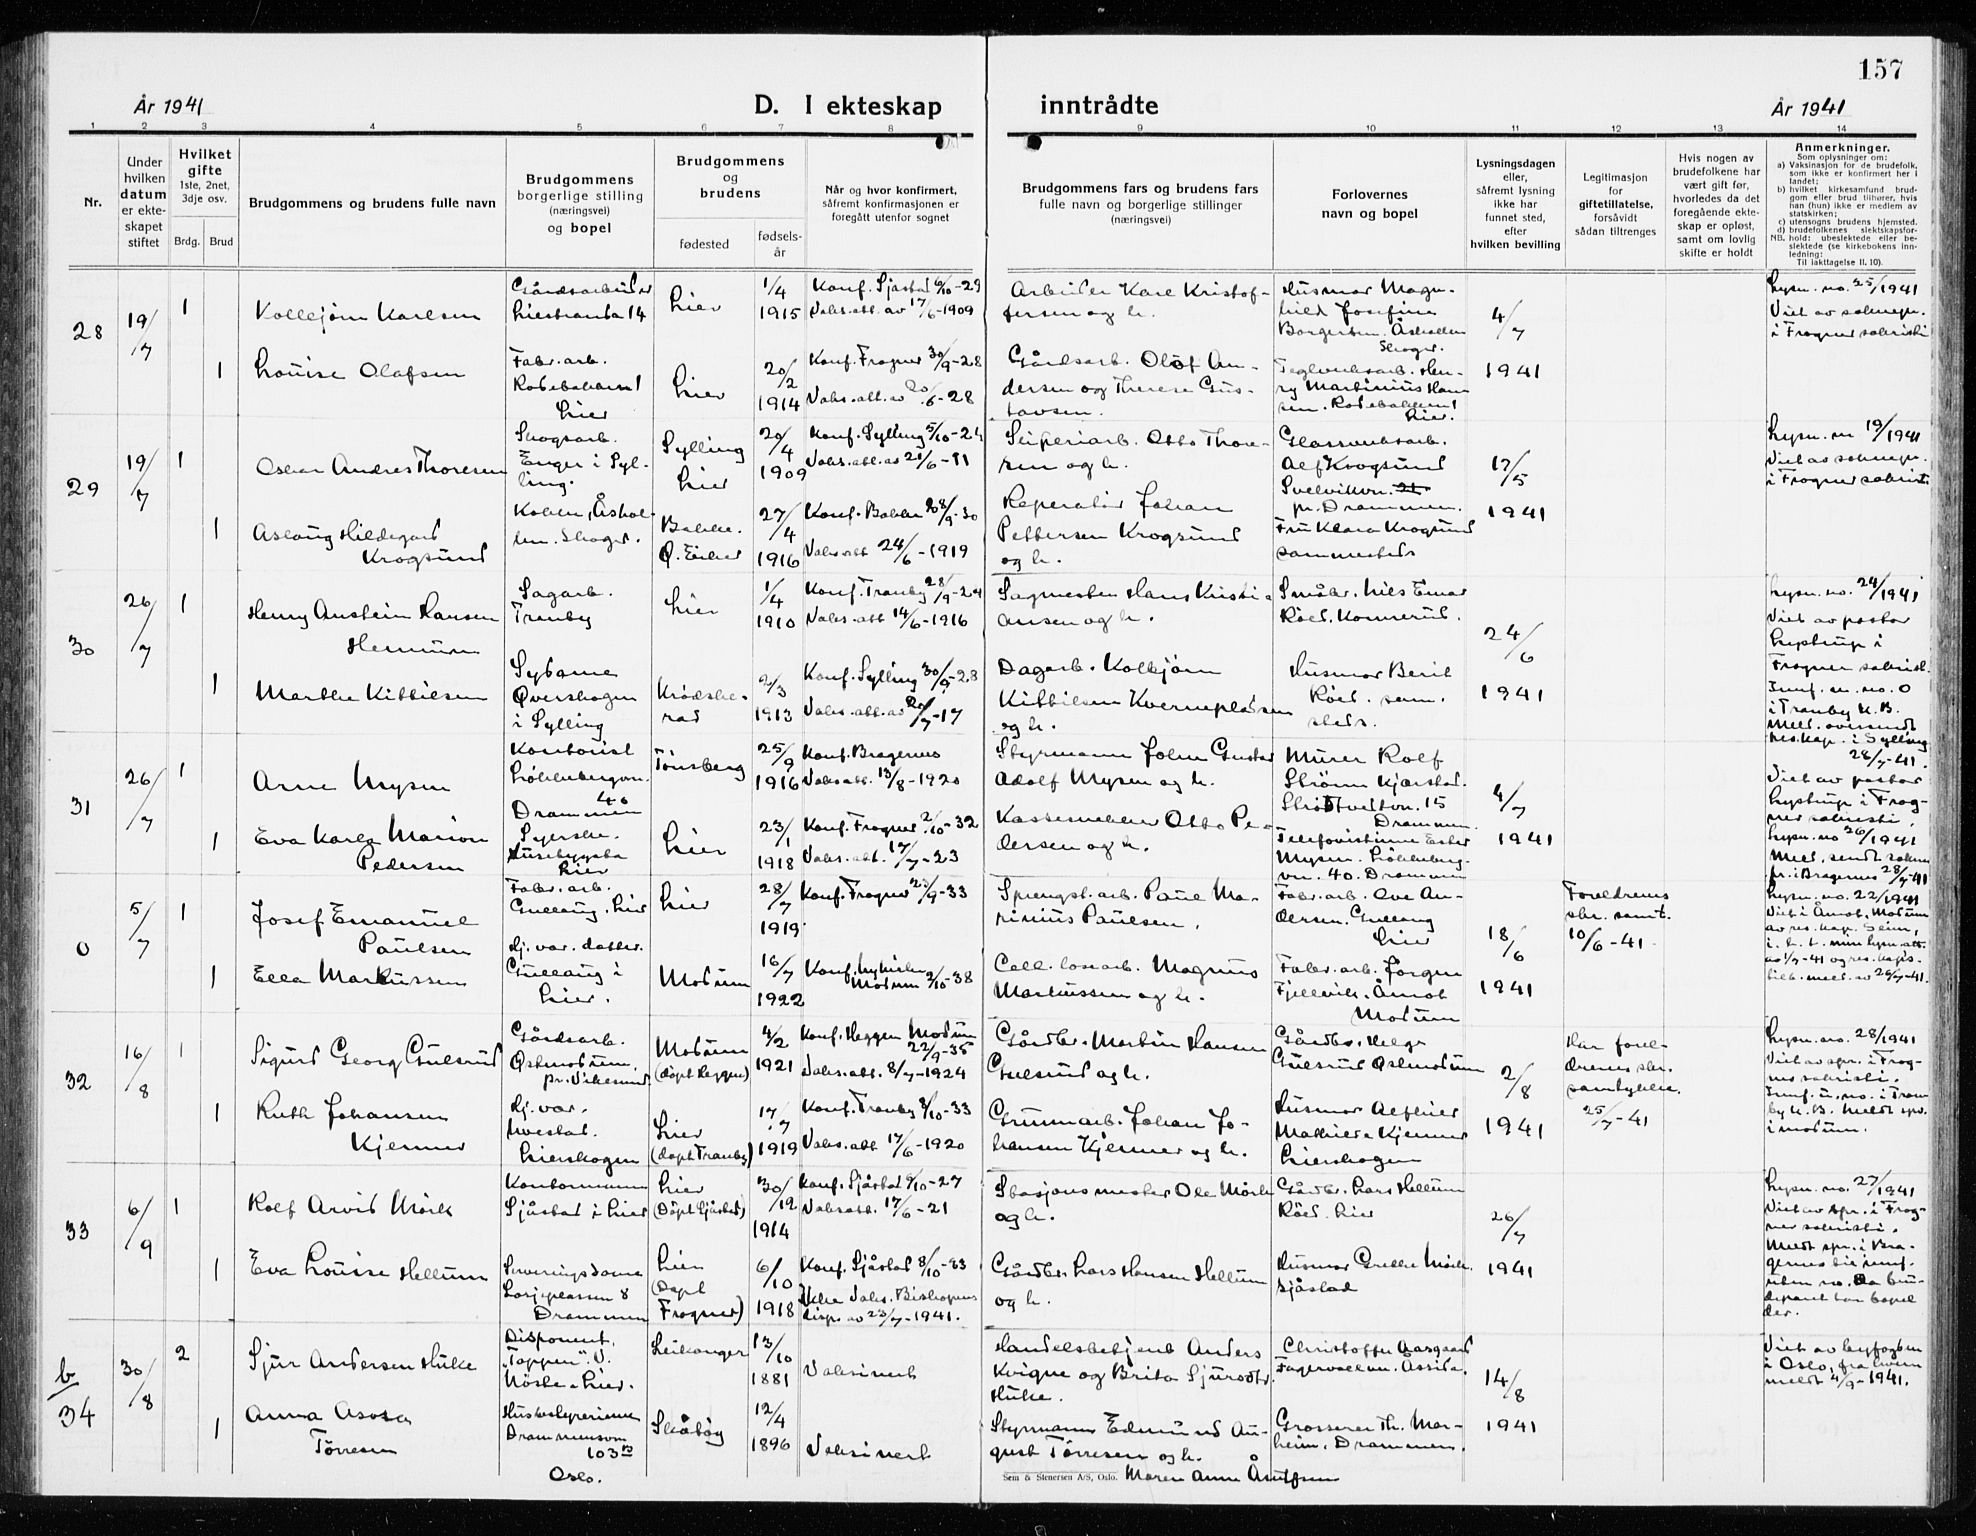 157
År 1941
D. I ekteskap inntrådte
År 1941
1 2 3 4 5 6 7 8 9 10 11 12 13 14
Nr.
Under
hvilken
datum
er ekte-
skapet
stiftet
Hvilket
gifte
1ste, 2net,
3dje osv.
Brdg. Brud
Brudgommens og brudens fulle navn
Brudgommens
borgerlige stilling
(næringsvei)
og bopel
Brudgommens
og
brudens
fødested
fødsels-
år
Når og hvor konfirmert,
såfremt konfirmasjonen er
foregått utenfor sognet
Brudgommens fars og brudens fars
fulle navn og borgerlige stillinger
(næringsvei)
Forlovernes
navn og bopel
Lysningsdagen
eller,
såfremt lysning
ikke har
funnet sted,
efter
hvilken bevilling
Legitimasjon
for
giftetillatelse,
forsåvidt
sådan tiltrenges
Hvis nogen av
brudefolkene har
vært gift før,
hvorledes da det
foregående ekte-
skap er opløst,
samt om lovlig
skifte er holdt
Anmerkninger.
Som oplysninger om:
a) Vaksinasjon for de brudefolk,
som ikke er konfirmert her i
landet;
b) hvilket kirkesamfund brud-
gom eller brud tilhører, hvis
han (hun) ikke er medlem av
statskirken;
c) utensogns brudens hjemsted.
d) brudefolkenes slektskapsfor-
hold: ubeslektede eller be-
slektede (se kirkebokens inn-
ledning:
Til iakttagelse II. 10).
28
19/7
1
Kollejørn Karlsen
Gårdsarbeider
Liestranda 14
Lier
1/4
1915
Konf. Sjåstad 6/10-29
Vaks.att. av 17/6-1909
Arbeider Kare Kristof-
fersen og h.
Husmor Magn-
hild Josefine
Borgersen. Åskollen
Skoger.
4/7
1941
Lysn. no. 25/1941
Viet av sokнepr.
i Frogner sakristi
1
Louise Olafsen
Fabr.arb.
Rødebakken 1
Lier
Lier
20/2
1914
Konf. Frogner 30/9-28
Vaks.att. av 20/6-28
Gårdsarb. Olof An-
dersen og Therese Gus-
tavsen.
Teglverksarb. Hen-
ry Martinius Han-
sen. Rødebakken 1
Lier.
29
19/7
1
Oskar Andres Thoresen
Skogsarb.
Enger i Syl-
ling.
Sylling
Lier
20/4
1909
Konf. Sylling 5/10-24
Vaks.att. av 21/6-11
Sliperiarb. Otto Thore-
sen og h.
Glassverksarb.
Alf Krogsund
Svelvikvn.
pr. Drammen.
17/5
1941
Lysn. nr 19/1941
Viet av soknepr.
i Frogner sakristi.
1
Aslaug Hildegard
Krogsund
Åskol-
len. Skoger.
Bakke.
Ø. Eiker
27/4
1916
Konf. Bakke 28/9-30
Vaks.att 24/6-1919
Reperatør Johan
Pettersen Krogsund
og h.
Fru Klara Krogsund
sammesteds
30
26/7
1
Henny Anstein Hansen
Hennum
Sagarb.
Tranby
Lier
1/4
1910
Konf. Tranby 28/9-24
Vaks.att 14/6-1916
Sagmester Hans Kristi-
ansen og h.
Småbr. Nils Einar
Røed. Konnerud.
24/6
1941
Lysn. no. 24/1941
Viet av pastor
Lystrup i
Frogner sakristi.
Innf. u. no. 0
i Tranby K.B.
Meld. oversendt
res.kap. i Sylling
28/7-41.
1
Marthe Kittilsen
Sydame
Øverskogen
i Sylling
Krødshe-
rad
2/3
1913
Konf. Sylling 30/9-28
Vaks.att. av 20/7-17
Dagarb. Kolbjørn
Kittilsen Kverneplassen
og h.
Husmor Berit
Røed. sam.
steds.
31
26/7
1
Arne Mysen
Kontorist
Løkkebergvn.
40
Drammen
Tønsberg
25/9
1916
Konf. Bragernes
Vaks.att. 13/8-1920
Styrmann John Gustav
Adolf Mysen og h.
Murer Rolf
Strøm Kjærstad.
Strøtvetvn. 15
Drammen.
4/7
1941
Viet av pastor
Lystrup i Frog-
ner sakristi.
Lysn. no 26/1941
Meld. sendt sokne
pr. i Bragernes 28/7-41
1
Eva Karla Marion
Pedersen
Syerske.
Husebygata
Lier
Lier
23/1
1918
Konf. Frogner 2/10-32
Vaks.att. 17/7-23
Kassemelder Otto Pe-
dersen og h.
Telefonistinne Ester
Mysen. Løkkeberg-
vn. 40. Drammen
0
5/7
1
Josef Emanuel
Paulsen
Fabr.arb.
Gullaug. Lier
Lier
28/7
1919
Konf. Frogner 23/9-33
Sprengst.arb. Paul Ma-
rinius Paulsen.
Fabr.arb. Ove An-
dersen. Gullaug
Lier
18/6
1941
Foreldrenes
skr. samt.
10/6-41.
Lysn. no. 22/1941
Viet i Åmot, Modum
av res.kap. Seim,
1
Ella Markussen
Hj.vær. datter.
Gullaug i
Lier.
Modum
16/7
1922
Konf. Nykirken
Modum 2/10-38
Cell.losarb. Magnus
Markussen og h.
Fabr.arb. Jørgen
Fjellvik. Åmot
Modum
32
16/8
1
Sigurd Georg Gulsrud
Gårdsarb.
Østmodum,
pr. Vikesund
Modum
(døpt Heggen)
4/2
1921
Konf. Heggen Modum
22/9-35
Vaks.att. 8/7-1924
Gårdbr. Martin Hansen
Gulsrud og h.
Gårdbr. Helge
Gulsrud Østmodum
2/8
1941
Har forel-
drenes skr.
samtykke.
25/7-41
Lysn. no. 28/1941
Viet av spr. i Frog-
ner sakristi.
Innf. u. no. i Tran
by K.B. Meldt spr.
i Modum.
1
Ruth Johansen
Kjenner
Hj. vær.
Lierskogen
Lier
(døpt Tranby)
17/7
1919
Konf. Tranby 8/10-33
Vaks.att 17/6-1920
Grunnarb. Johan Jo-
hansen Kjenner og h.
Husmor Alfhild
Mathilde Kjenner
Lierskogen
33
6/9
1
Rolf Arvid Mørk
Kontormann
Sjåstad i Lier
Lier
(Døpt Sjåstad)
30/12
1914
Konf. Sjåstad 9/10-27
Vaks.att. 17/6-21
Stasjonsmester Ole Mørk
og h.
Gårdbr. Lars Hellum
Røed. Lier
26/7
1941
Lysn. no. 27/1941
Viet av spr. i Frog-
ner sakristi.
Meldt spr. i Bra-
gernes
1
Eva Louise Hellum
Serveringsdame
Losjeplassen 8
Drammen
Lier
(Døpt
Frogner)
6/10
1918
Konf. Sjåstad 8/10-33
Ikke vaks. Biskopens
disp. av 23/7-1941.
Gårdbr. Lars Hansen Hellum
og h.
Husmor Grethe Mørk.
Sjåstad
b/34
30/8
2
Sjur Andersen Huke
Disponent.
"Toppen". V.
Nøste. Lier.
Leikanger
13/10
1881
Vaksinert
Handelsbetjent Anders
Kvigne og Brita Sjursdtr.
Huke.
Christoffer Aasgaard
Fagervollvn. Åssida.
14/8
1941
Viet av byfogden
i Oslo, fra hvem
meldt 4/9-1941.
1
Anna Asora
Tørresen
Husbestyrerinne
Drammensvn
103
Oslo.
Skåtøy
12/4
1896
Vaksinert
Styrmann Edmund Au-
gust Tørresen og h.
Maren Anne Åsulfsen
Grosserer Th. Mar-
heim. Drammen.
Sem & Stenersen A/S, Oslo.